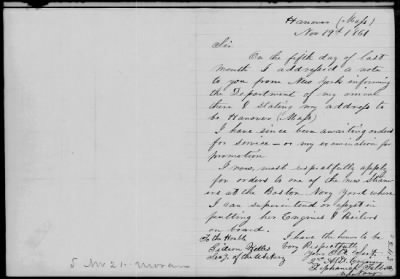 Hanover (Mass)
Nov 19th 1861
Sir
On the fifth day of last
month I addressed a note
to you from New York informing
the Department of my arrival
there & stating my address to
be Hanover (Mass)
I have since been awaiting orders
for service - or my examination for
promotion
I now, most respectfully apply
for orders to one of the new Steam-
ers at the Boston Navy Yard where
I can superintend or assist in
putting her Engines & Boilers
on board.
I have the honor to be
Very Respectfully
Your Obt Servt
To the Honble
Gideon Welles
Secy. of the Navy